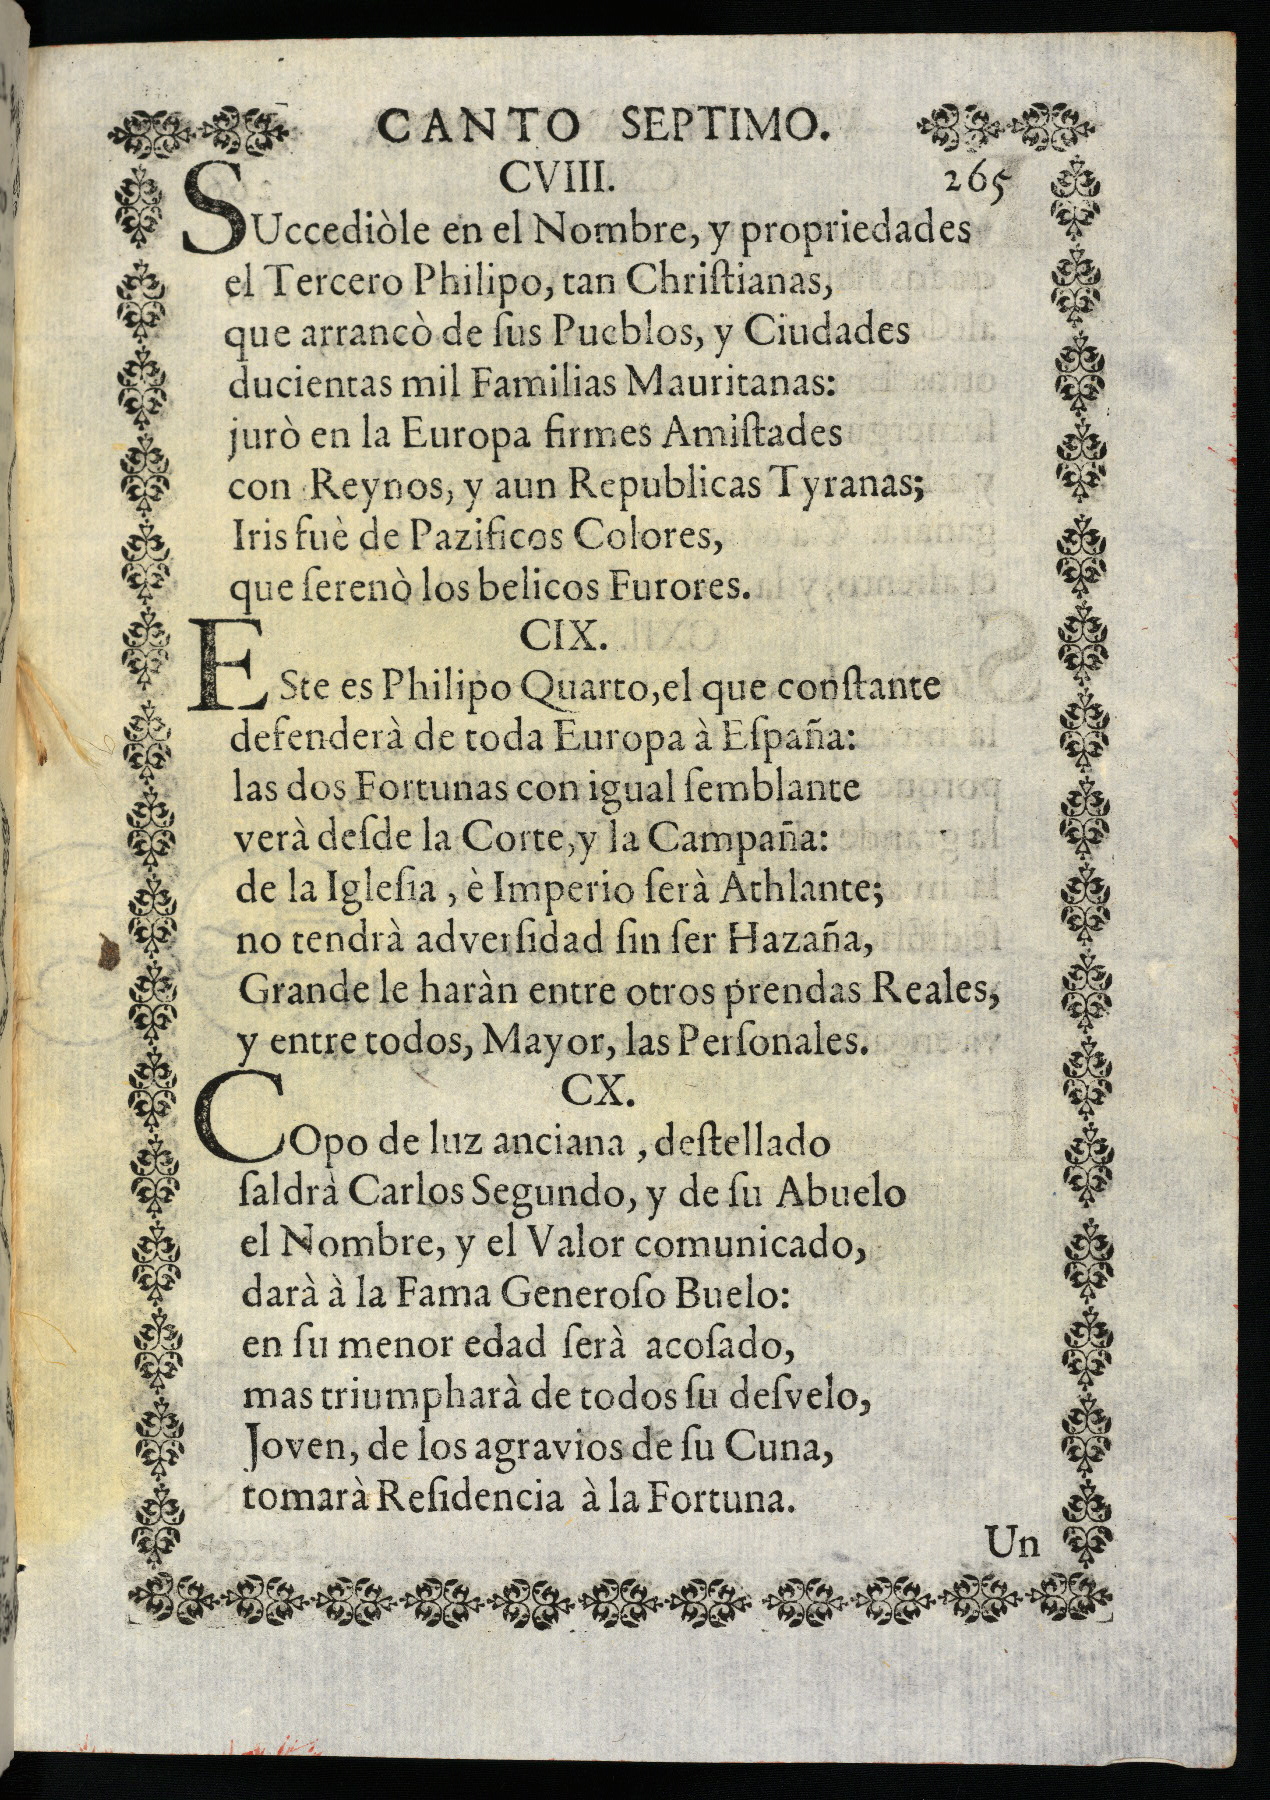 CANTO SEPTIMO.
CVIII. 265
SUccediòle en el Nombre, y propriedades
el Tercero Philipo, tan Chriſtianas,
que arrancò de ſus Pueblos, y Ciudades
ducientas mil Familias Mauritanas:
jurò en la Europa firmes Amiſtades
con Reynos, y aun Republicas Tyranas;
Iris fuè de Pazificos Colores,
que ſerenò los belicos Furores.
CIX.
ESte es Philipo Quarto, el que conſtante
defenderà de toda Europa à Eſpaña:
las dos Fortunas con igual ſemblante
verà deſde la Corte, y la Campaña:
de la Igleſia, è Imperio ſerà Athlante;
no tendrà adverſidad ſin ſer Hazaña,
Grande le haràn entre otros prendas Reales,
y entre todos, Mayor, las Perſonales.
CX.
COpo de luz anciana, deſtellado
ſaldrà Carlos Segundo, y de ſu Abuelo
el Nombre, y el Valor comunicado,
darà à la Fama Generoſo Buelo:
en ſu menor edad ſerà acoſado,
mas triumpharà de todos ſu deſvelo,
Joven, de los agravios de ſu Cuna,
tomarà Reſidencia à la Fortuna.
Un